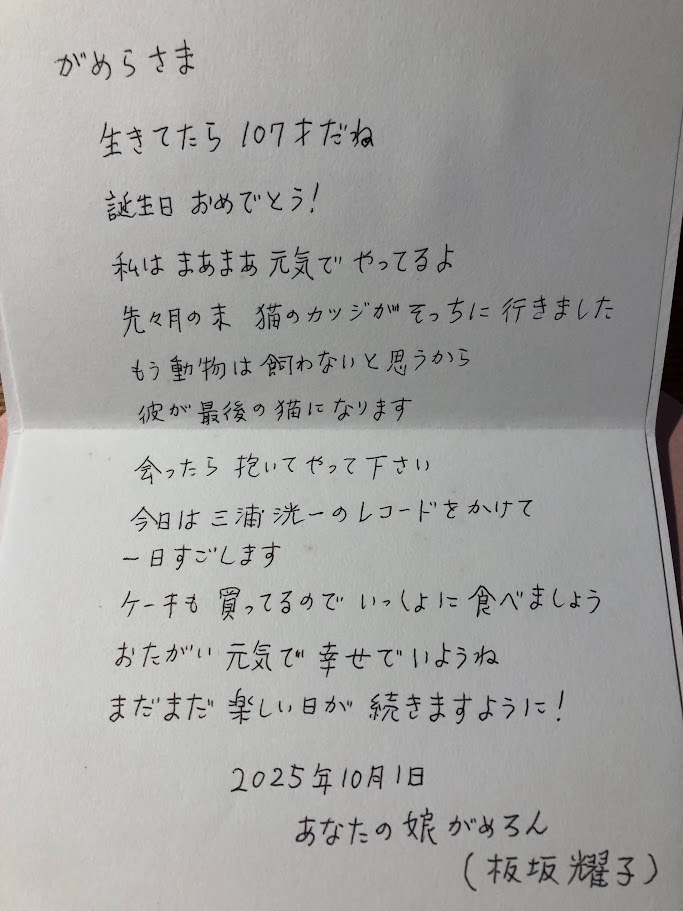 がめらさま
生きてたら 107才だね
誕生日 おめでとう!
私は まあまあ 元気で やってるよ
先々月の末 猫のカツジが そっちに 行きました
もう動物は 飼わないと思うから
彼が最後の猫になります
会ったら 抱いてやって下さい
今日は 三浦洸一のレコードをかけて
一日すごします
ケーキも 買ってるので いっしょに 食べましょう
おたがい 元気で 幸せでいようね
まだまだ 楽しい日が 続きますように!
2025年10月1日
あなたの娘 がめろん
(板坂 耀子)